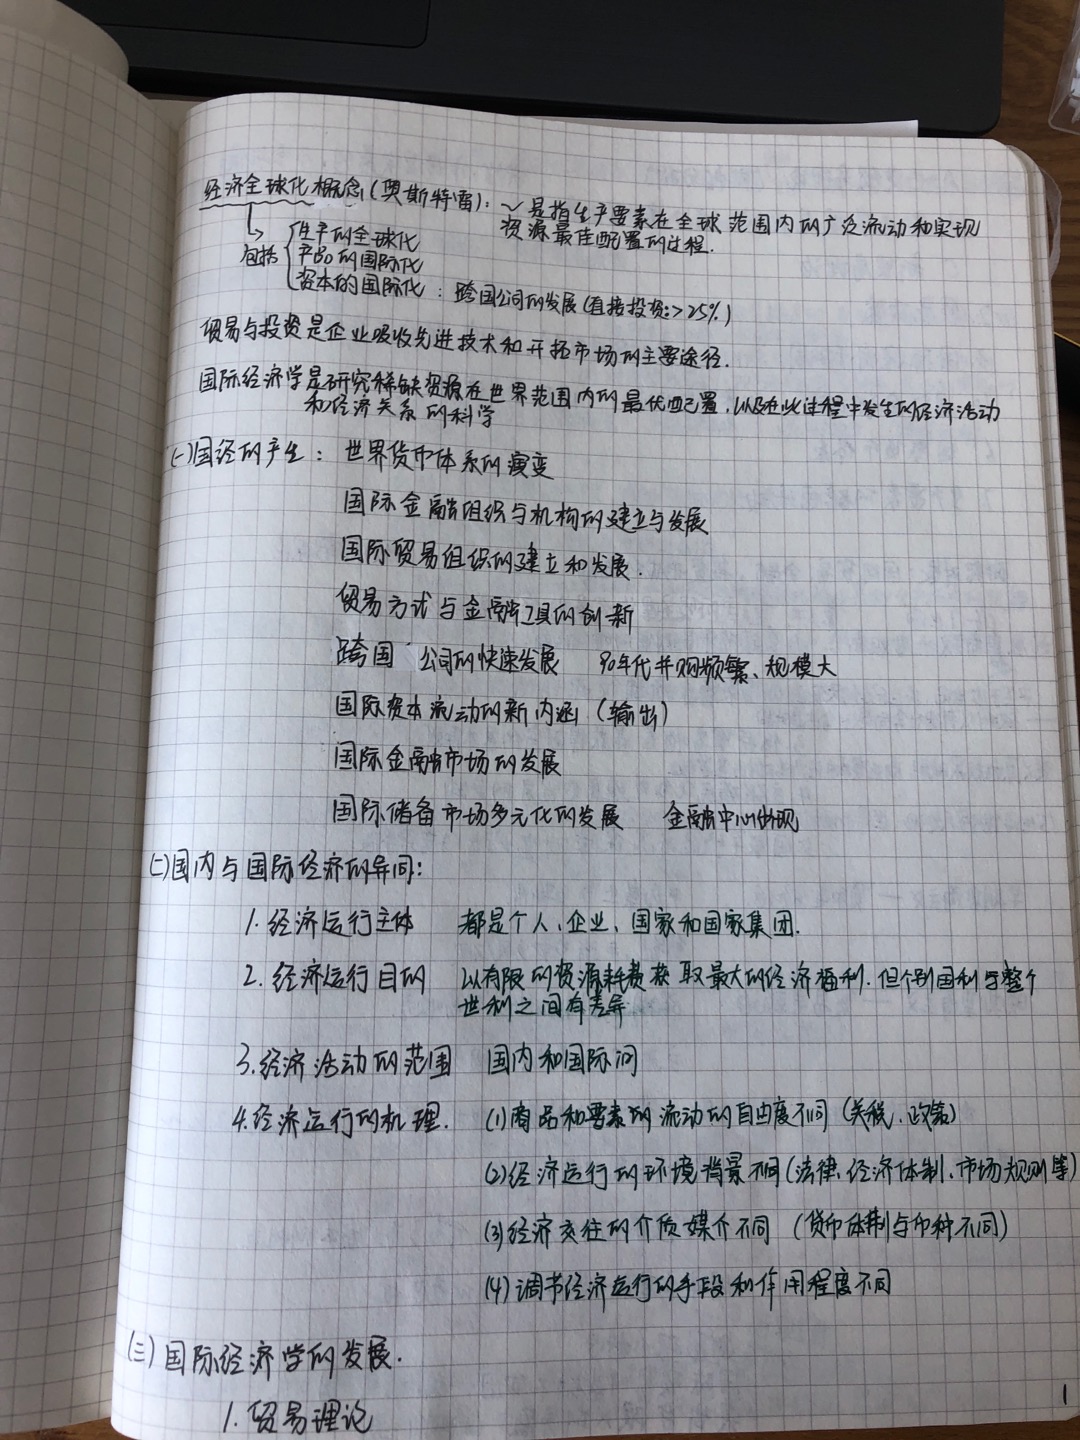 经济全球化概念(奥斯特雷): ～是指生产要素在全球范围内的广泛流动和实现
资源最佳配置的过程.
包括 生产的全球化
产品的国际化
资本的国际化: 跨国公司的发展(直接投资:>25%)
贸易与投资是企业吸收先进技术和开拓市场的主要途径.
国际经济学是研究稀缺资源在世界范围内的最优配置,以及在此过程中发生的经济活动
和经济关系的科学
(一)国经的产生: 世界货币体系的演变
国际金融组织与机构的建立与发展
国际贸易组织的建立和发展.
贸易方式与金融工具的创新
跨国公司的快速发展 90年代并购频繁、规模大
国际资本流动的新内涵(输出)
国际金融市场的发展
国际储备市场多元化的发展 金融中心出现
(二)国内与国际经济的异同:
1.经济运行主体 都是个人、企业、国家和国家集团.
2.经济运行目的 以有限的资源耗费获取最大的经济福利.但个别国利与整个
世利之间有差异
3.经济活动的范围 国内和国际间
4.经济运行的机理. (1)商品和要素的流动的自由度不同(关税、政策)
(2)经济运行的环境背景不同(法律、经济体制、市场规则等)
(3)经济交往的介质媒介不同 (货币体制与币种不同)
(4)调节经济运行的手段和作用程度不同
(三)国际经济学的发展.
1.贸易理论
1